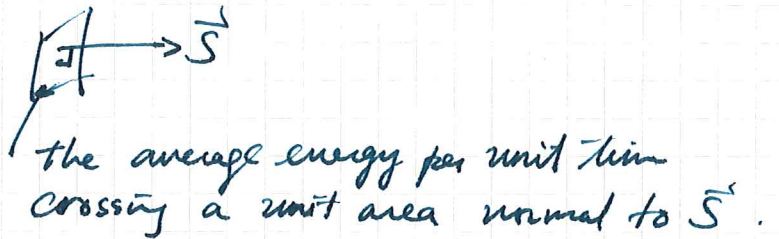 S⃗
the average energy per unit time
crossing a unit area normal to S⃗.